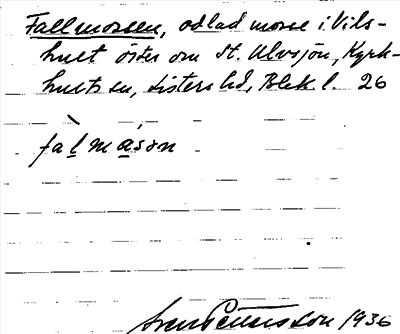 Fallmossen, odlad mosse i Vils-
hult öster om St. Ulvsjön, Kyrk-
hults sn, Listers hd, Blek. l. 26
fàl̲má̲sən
Sven Pettersson 1936